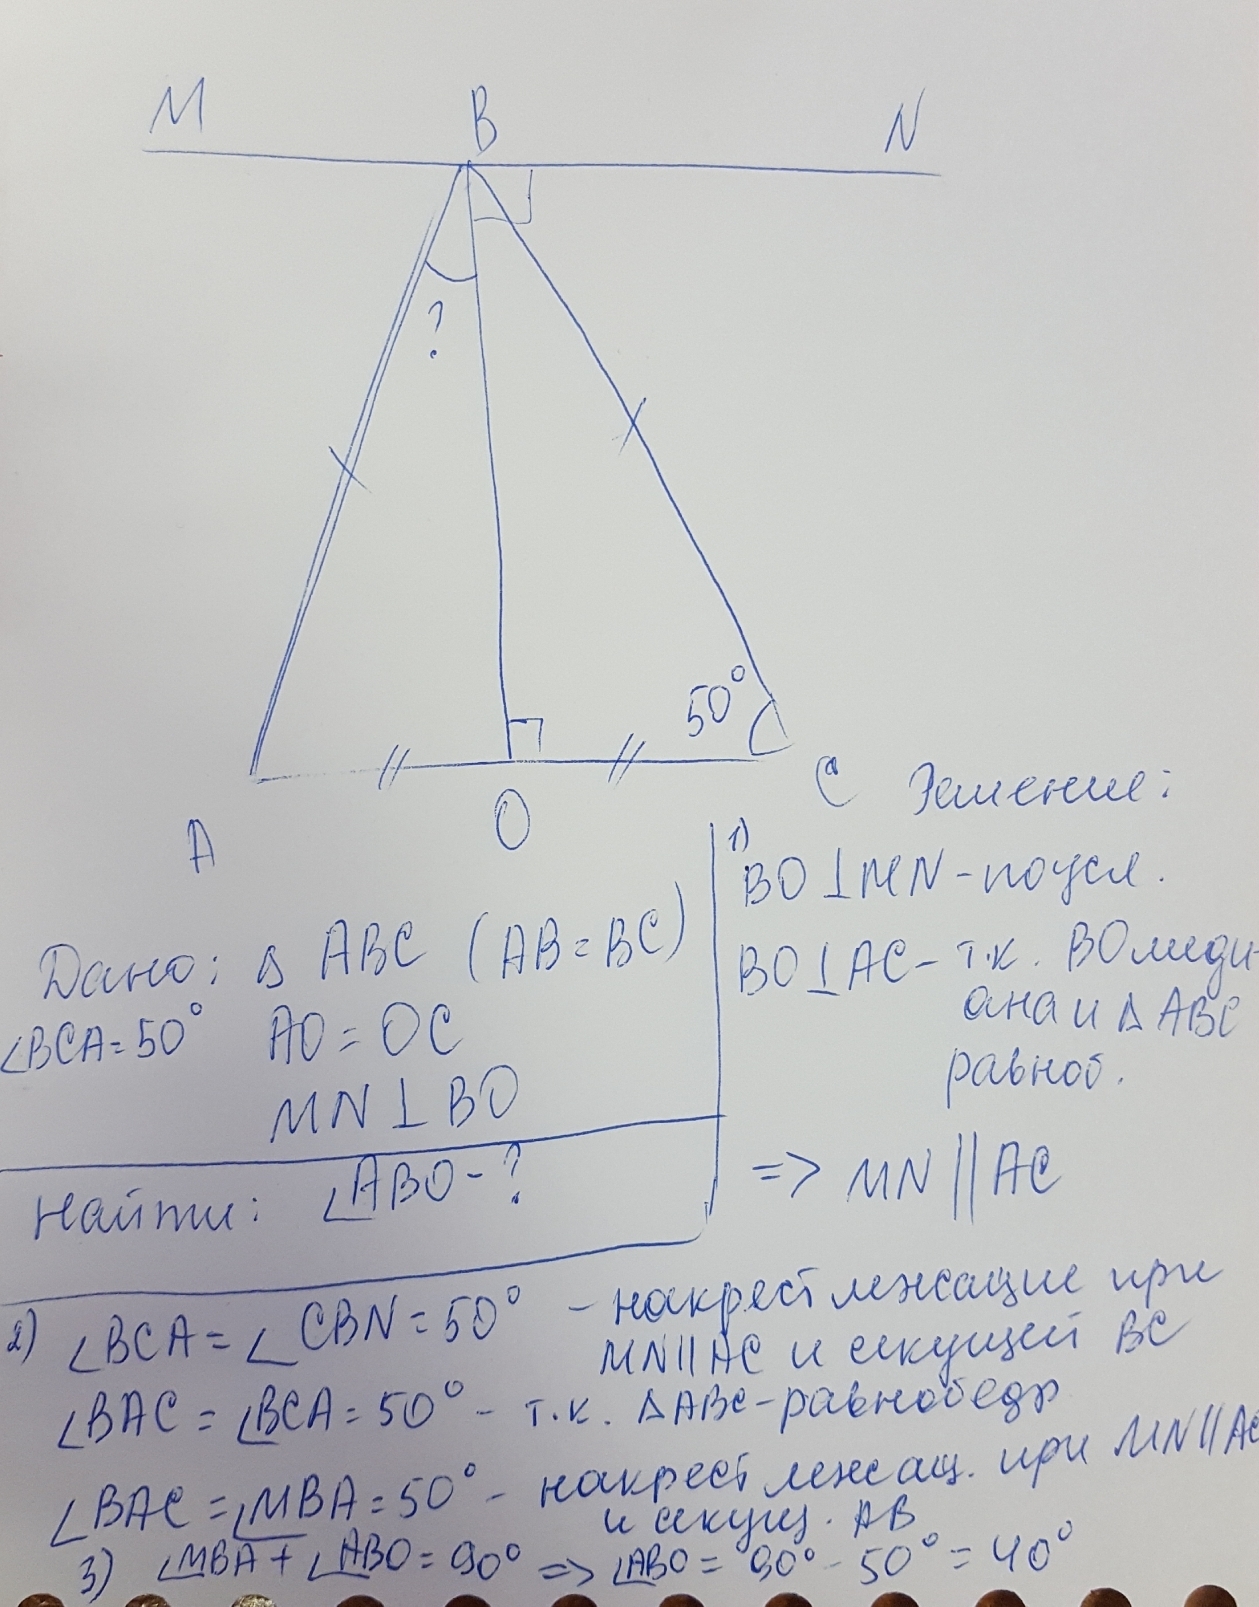 M
B
N
?
50°
A
O
C
Дано: Δ ABC (AB=BC)
∠BCA=50° AO=OC
MN⊥BO
Найти: ∠ABO-?
Решение:
1)
BO⊥MN-по усл.
BO⊥AC- т.к. BO меди-
ана и Δ ABC
равноб.
=> MN || AC
2) ∠BCA=∠CBN=50° - накрест лежащие при
MN||AC и секущей BC
∠BAC=∠BCA=50° - т.к. ΔABC-равнобедр
∠BAC=∠MBA=50° - накрест лежащ. при MN||AC
и секущ. AB
3) ∠MBA+∠ABO=90° => ∠ABO=90°-50°=40°